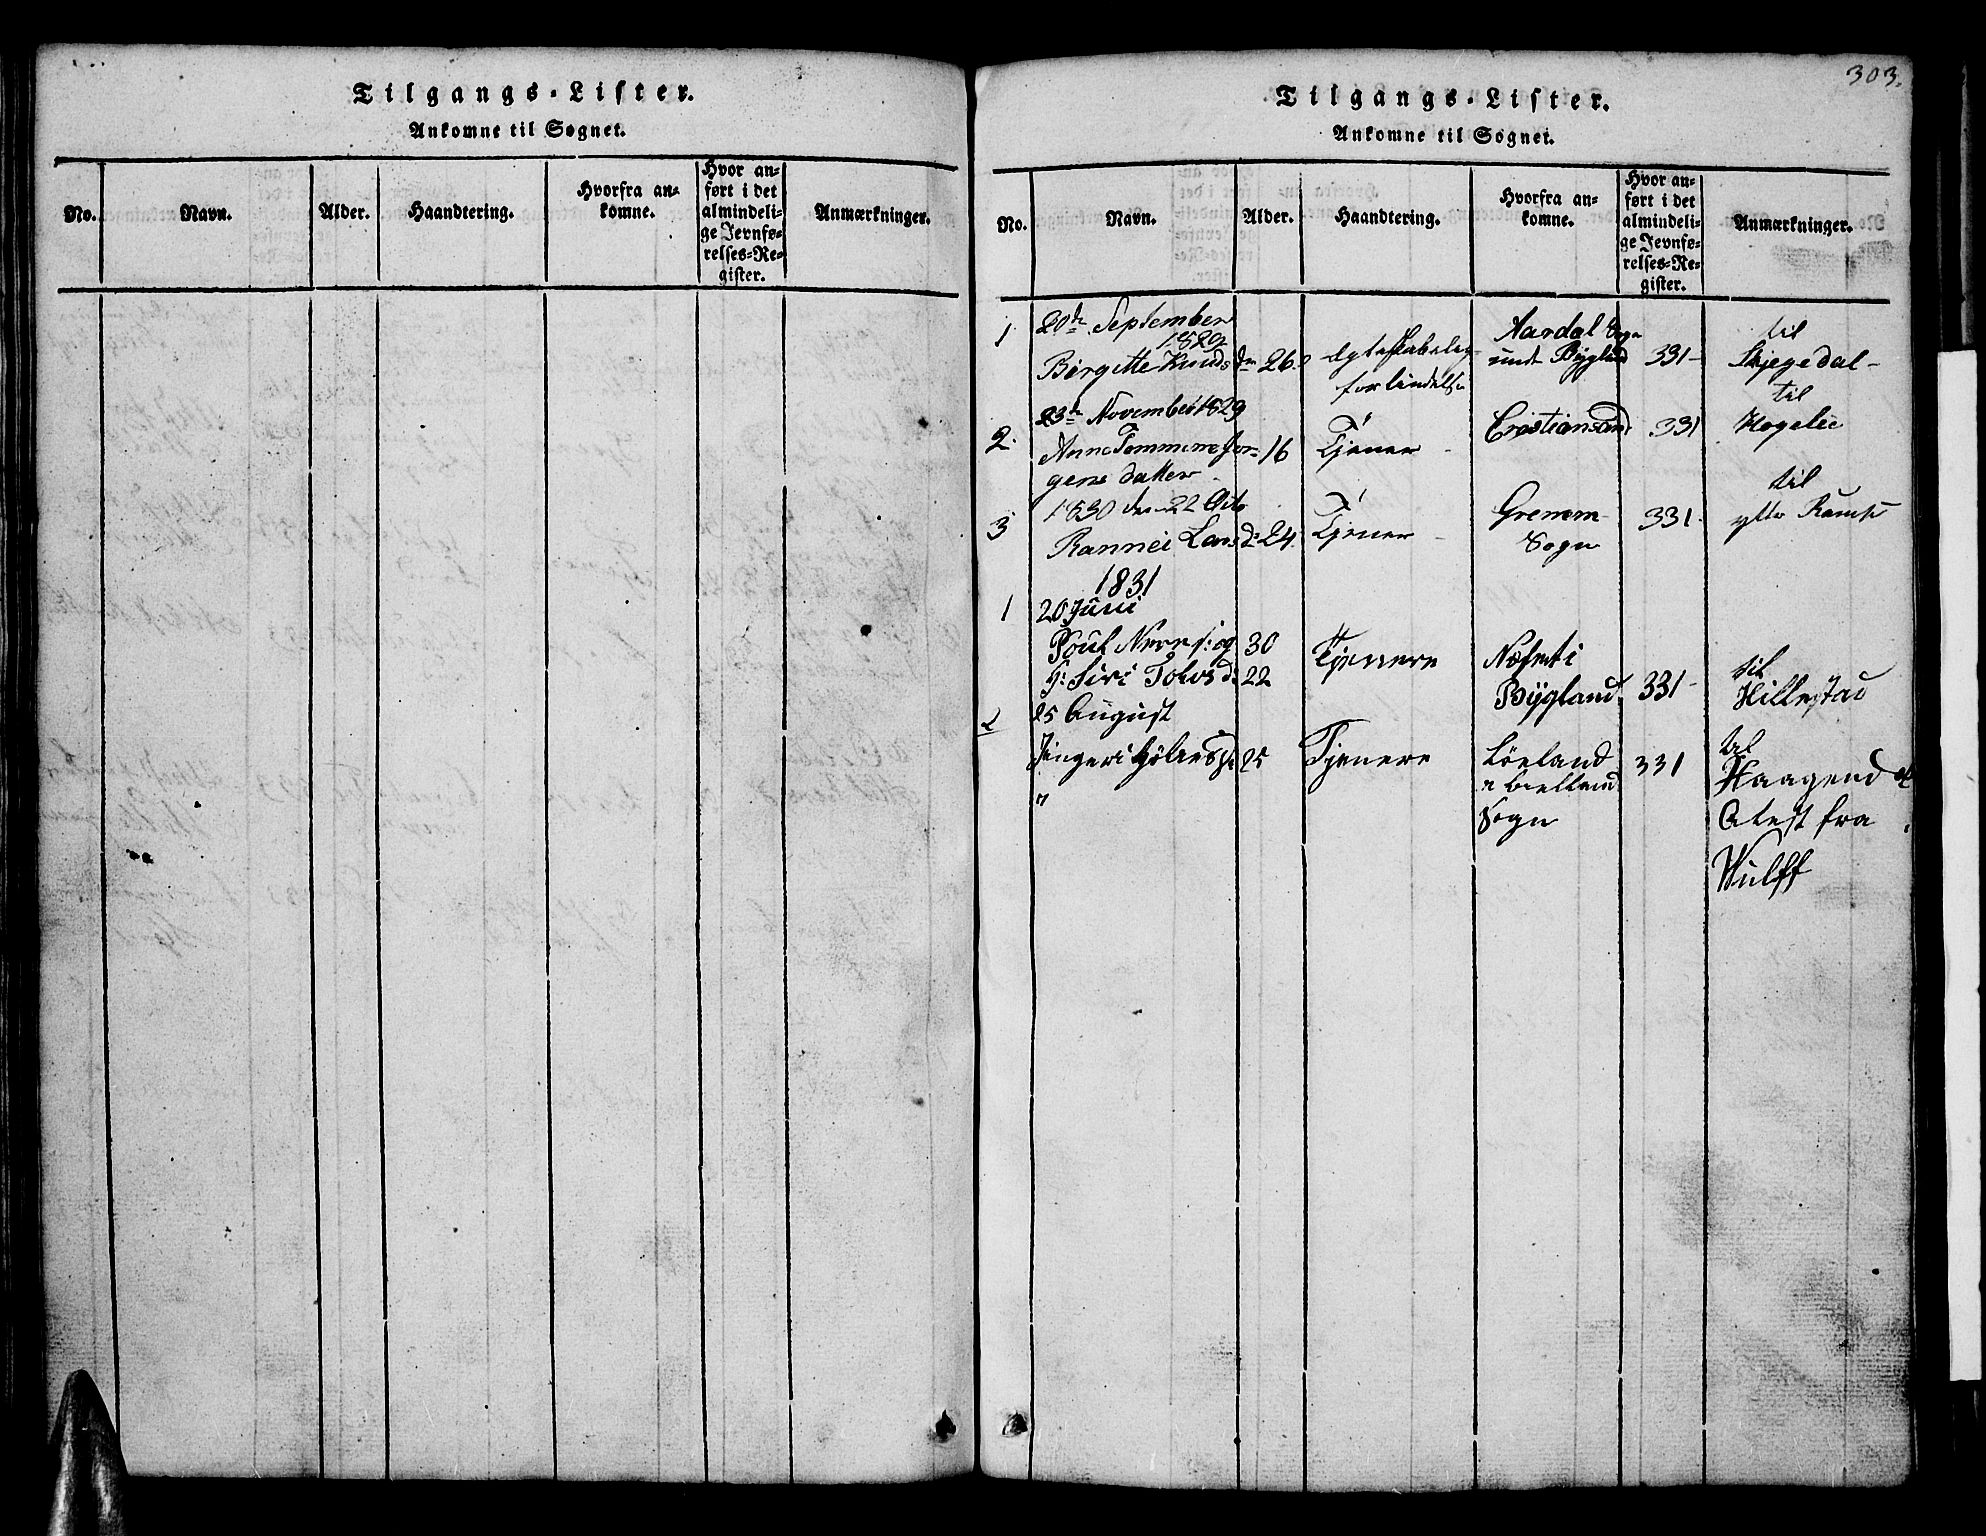 Tilgangs-Lister.
Ankomne til Sognet.
No.
Navn.
Alder.
Haandtering.
Hvorfra an-
komne.
Hvor an-
ført i det
almindeli-
ge Jevnfø-
relses-Re-
gister.
Anmærkninger.
303.
Tilgangs-Lister.
Ankomne til Sognet.
No.
Navn.
Alder.
Haandtering.
Hvorfra an-
komne.
Hvor an-
ført i det
almindeli-
ge Jevnfø-
relses-Re-
gister.
Anmærkninger.
1
20de September
1829
Birgitte Knudsdr 26
Ægteskabelig
forbindelse
Aardal Sogn
Bygland
331
til
Skjegedal
23de November 1829
2.
Anne Tomine Jør-
gensdatter
16
Tjener
Cristiansand
331
til
Hægelie
1830 den 22 Oct
3
Rannei Lars d. 24
Tjener
Grenem
Sogn
331
til
1831
1
20 Juni
Poul og 30
H: Siri d. 22
Tjenere
Næset i
Bygland
331
til
Hillestad
2
25 August
25
Tjenere
Løeland
i Bielland
Sogn
331
til
Haagend
Atest fra
Wulff